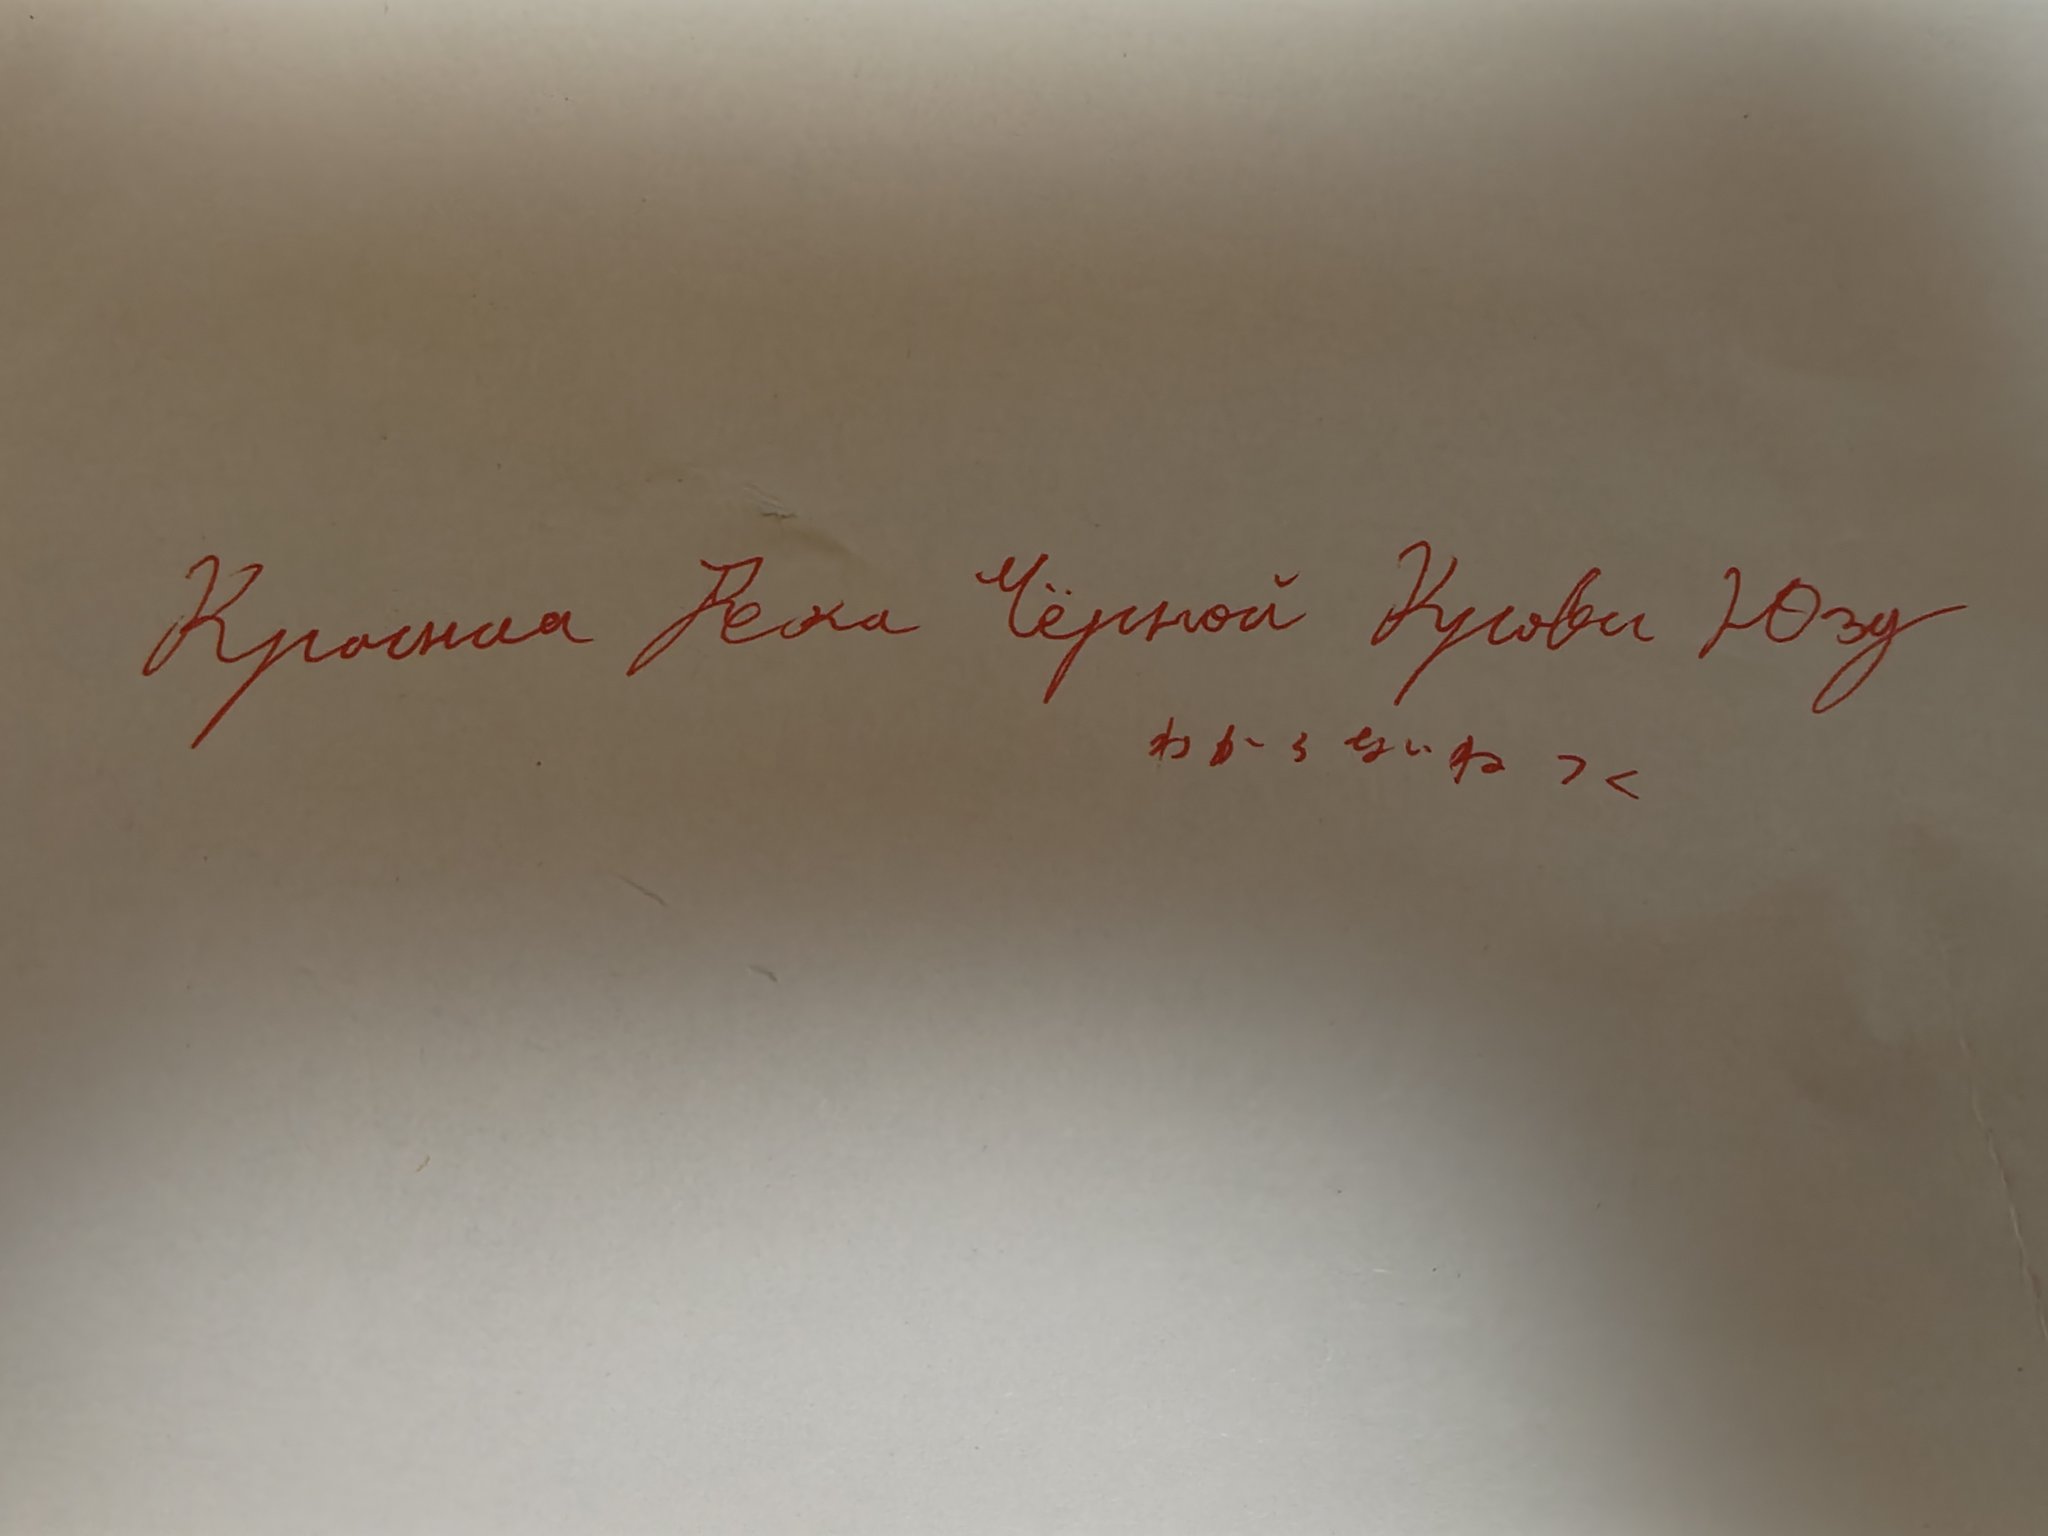 Красная Река Чёрной Крови Юзу
わからないね ><